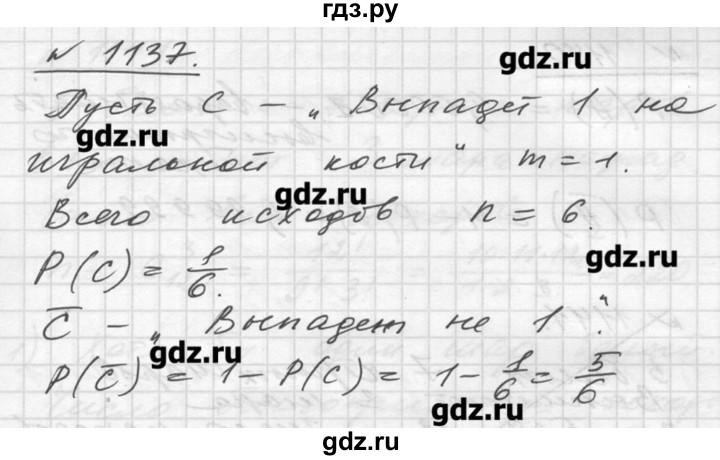 гдз.ру
№ 1137.
gdz.ru
Пусть C – „ Выпадет 1 на
gdz.ru
игральной кости " m = 1.
gdz.ru
Всего исходов n = 6.
gdz.ru
P(C) = 1/6.
C̅ – „ Выпадет не 1 ".
gdz.ru
P(C̅) = 1 – P(C) = 1 – 1/6 = 5/6
gdz.ru
gdz.ru